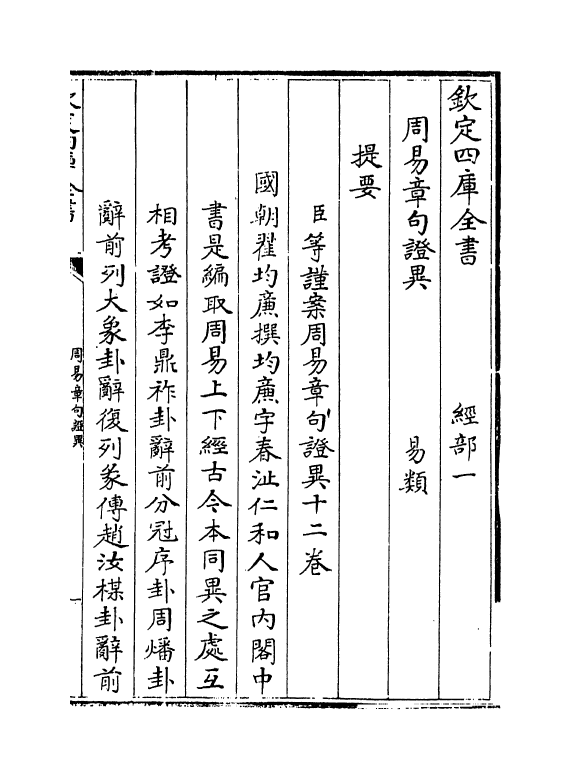 欽定四庫全書 經部一
周易章句證異 易類
提要
臣等謹案周易章句證異十二卷
國朝翟均廉撰均廉字春沚仁和人官内閣中
書是編取周易上下經古今本同異之處互
相考證如李鼎祚卦辭前分冠序卦周燔卦
辭前列大象卦辭復列彖傳趙汝楳卦辭前
周易章句證異 一